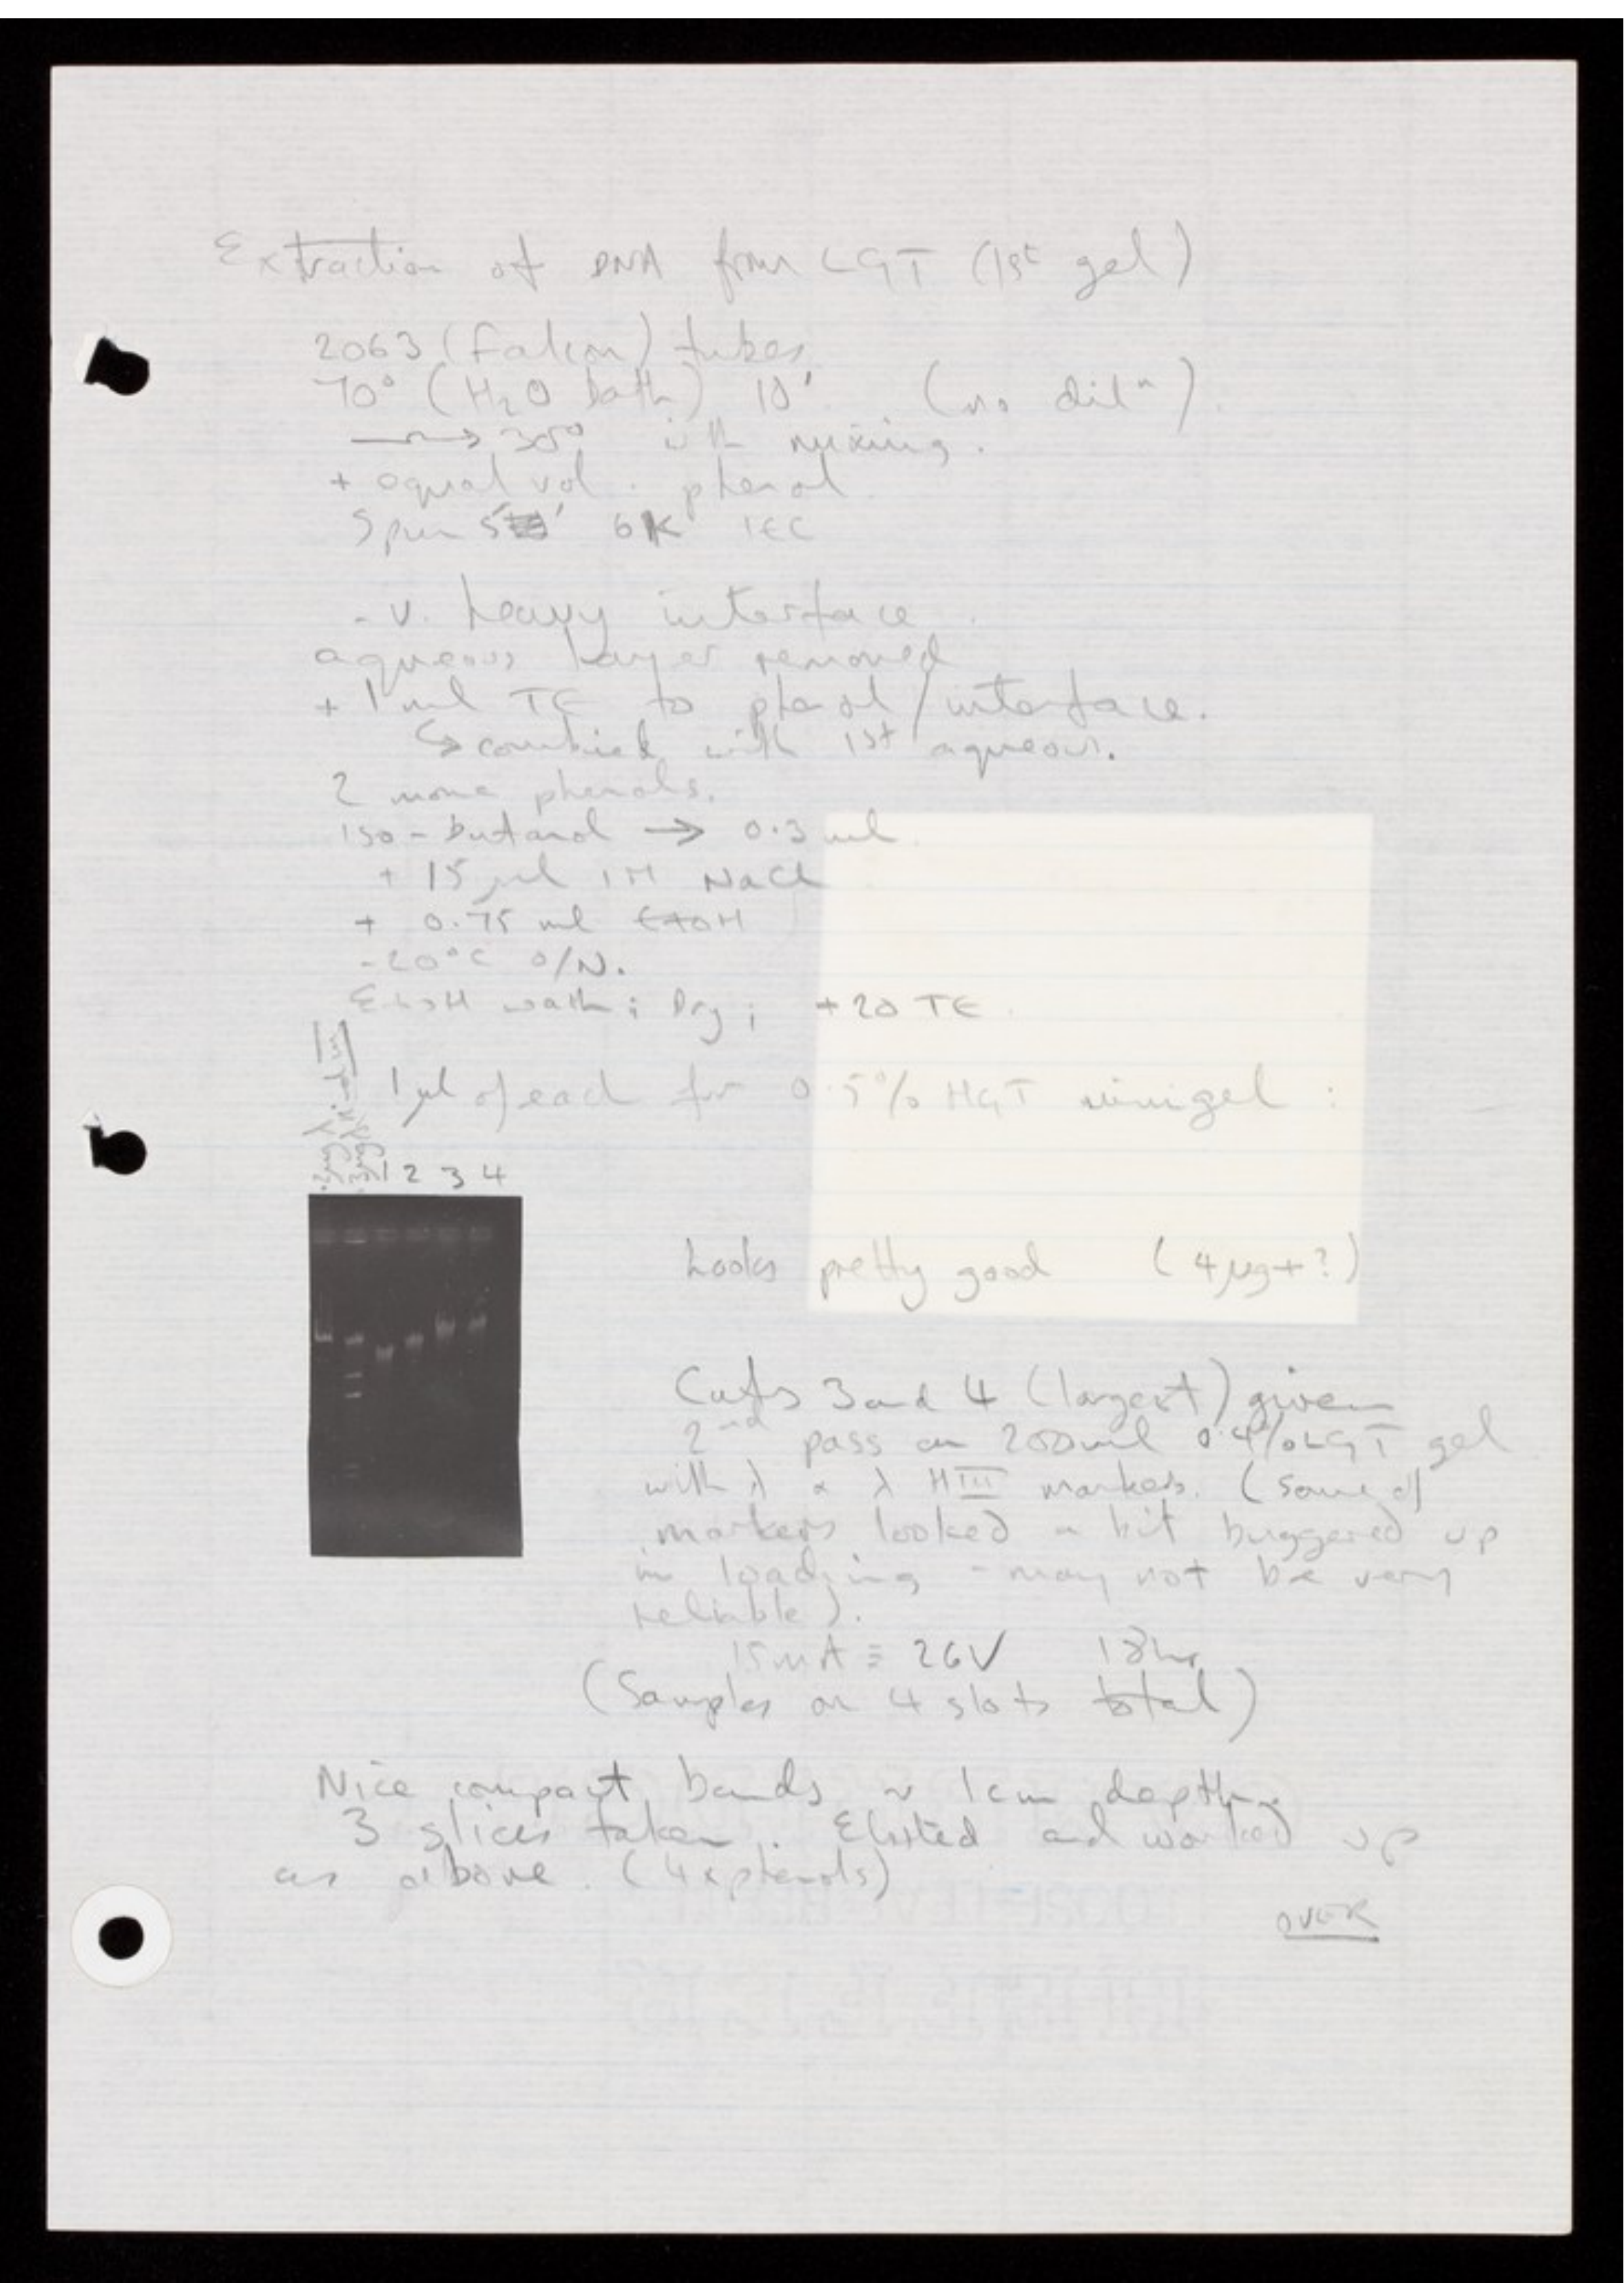 Extraction of DNA from LGT (1st gel)
2063 (Falcon) tubes
70° (H2O bath) 10' (no dilⁿ).
→ 35° with mixing.
+ equal vol. phenol
Spun 5' 6K IEC
- v. heavy interface.
aqueous layer removed
+ 1 ml TE to phenol/interface.
↳ combined with 1st aqueous.
2 more phenols.
iso-butanol → 0.3 ml.
+ 15 µl 1M NaCl
+ 0.75 ml EtOH
-20°C O/N.
EtOH wash; Dry; +20 TE.
1 µl of each for 0.5% HGT minigel:
1 2 3 4
Looks pretty good (4µg+?)
Cuts 3 and 4 (largest) given
2nd pass on 200ml 0.4% LGT gel
with λ & λ HIII markers. (Some of
markers looked a bit buggered up
in loading - may not be very
reliable).
15mA ≡ 26V 18hr
(Samples on 4 slots total)
Nice compact bands ~ 1cm depth.
3 slices taken. Eluted and worked up
as above. (4 x phenols)
OVER